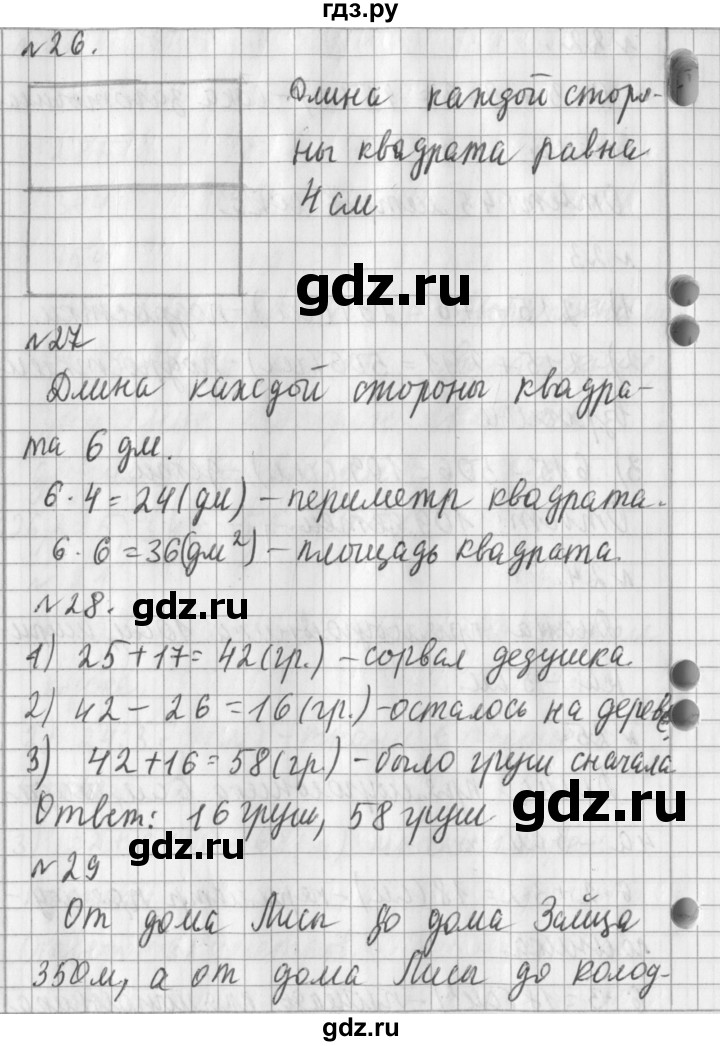 гдз.ру
№26.
Длина каждой сторо-
ны квадрата равна
4 см
gdz.ru
№27
Длина каждой стороны квадра-
та 6 дм.
6·4=24(дм) – периметр квадрата.
6·6=36(дм²) – площадь квадрата.
№28. gdz.ru
1) 25+17=42(гр.) – сорвал дедушка.
2) 42-26=16(гр.) – осталось на дереве
3) 42+16=58(гр.) – было груш сначала
Ответ: 16 груш, 58 груш gdz.ru
gdz.ru
№29
От дома Лисы до дома Зайца
350м, а от дома Лисы до колод-
gdz.ru